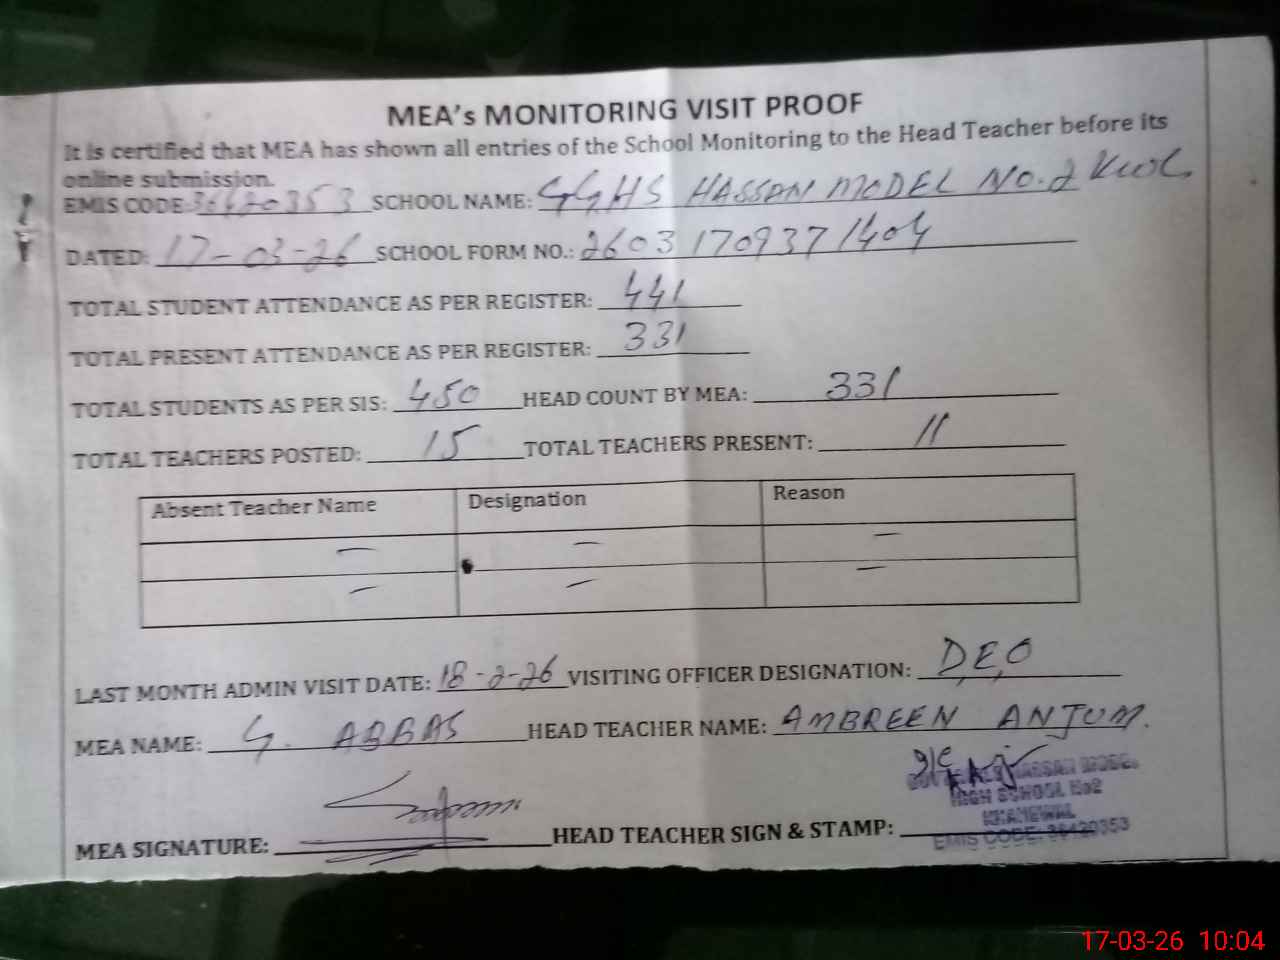 MEA's MONITORING VISIT PROOF
It is certified that MEA has shown all entries of the School Monitoring to the Head Teacher before its
online submission.
EMIS CODE: 36420353 SCHOOL NAME: GGHS HASSAN MODEL NO.2 KWL.
DATED: 17-03-26 SCHOOL FORM NO.: 26031709371404
TOTAL STUDENT ATTENDANCE AS PER REGISTER: 441
TOTAL PRESENT ATTENDANCE AS PER REGISTER: 331
TOTAL STUDENTS AS PER SIS: 450 HEAD COUNT BY MEA: 331
TOTAL TEACHERS POSTED: 15 TOTAL TEACHERS PRESENT: 11
Absent Teacher Name Designation Reason
— — —
— — —
LAST MONTH ADMIN VISIT DATE: 18-2-26 VISITING OFFICER DESIGNATION: D,E,O
MEA NAME: G. ABBAS HEAD TEACHER NAME: AMBREEN ANJUM.
HASSAN MODEL
HIGH SCHOOL No2
KHANEWAL
MEA SIGNATURE: HEAD TEACHER SIGN & STAMP:
EMIS CODE: 36420353
17-03-26 10:04